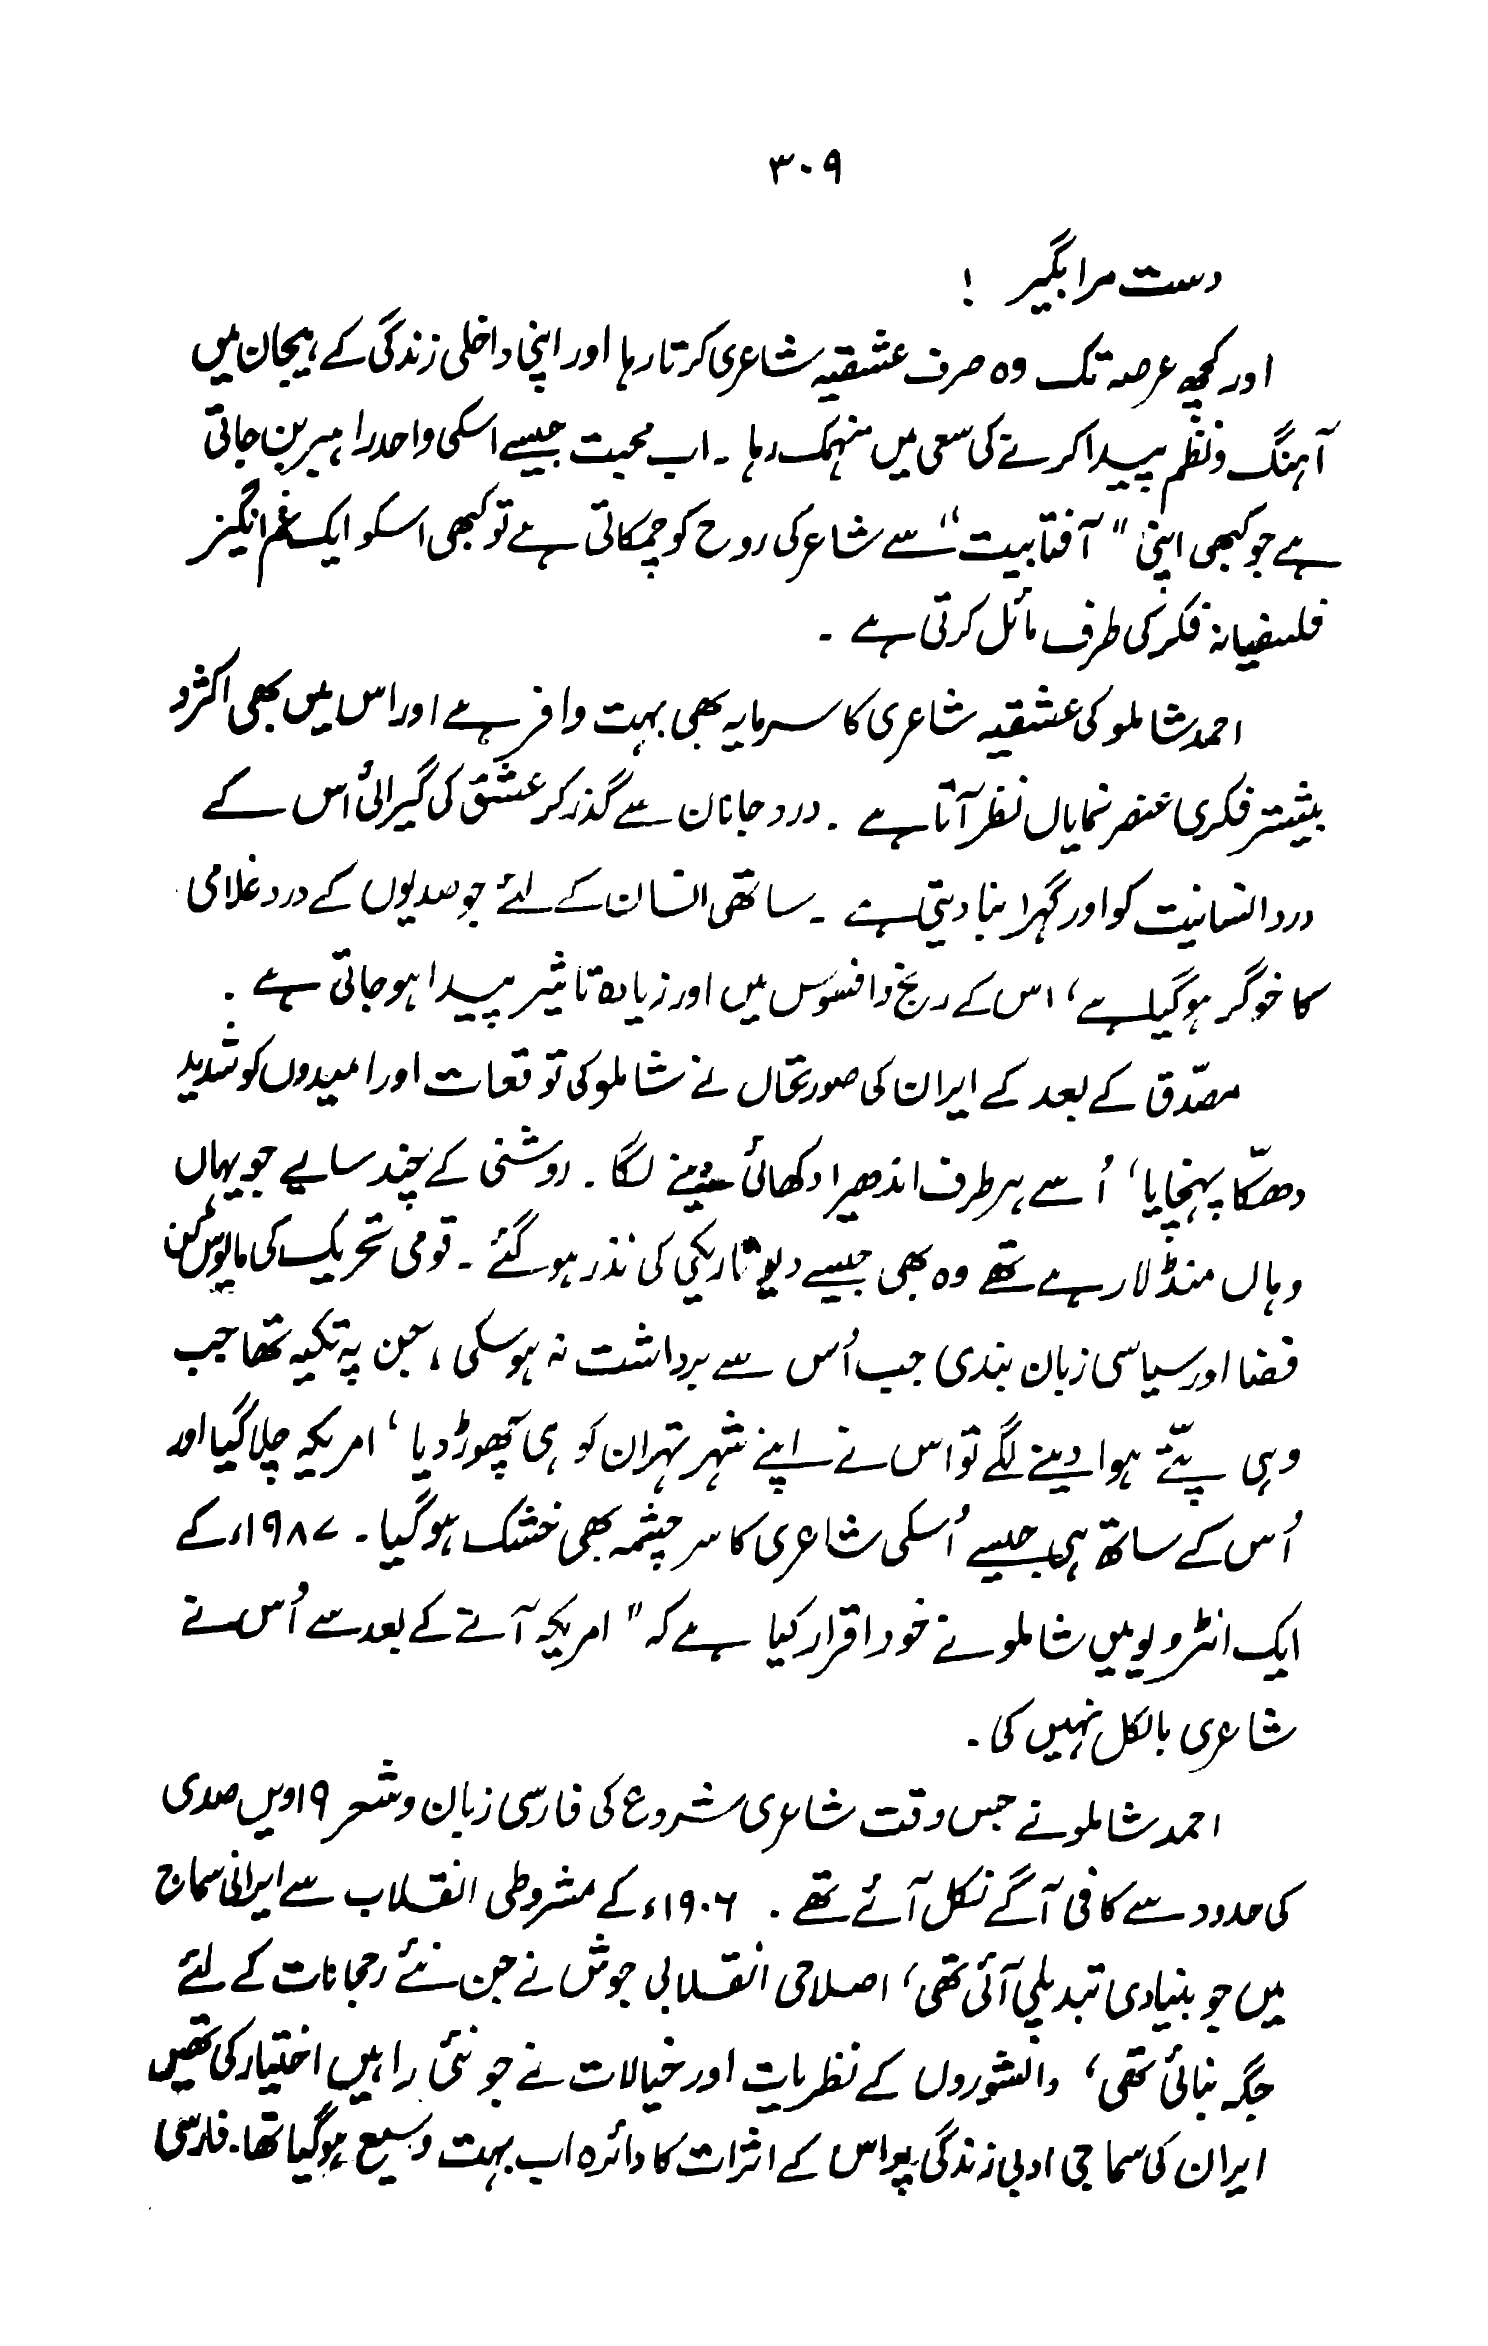 ۳۰۹
دست مرا بگیر !
اور کچھ عرصہ تک وہ صرف عشقیہ شاعری کرتا رہا اور اپنی داخلی زندگی کے ہیجان میں
آہنگ و نظم پیدا کرنے کی سعی میں منہمک رہا ۔ اب محبت جیسے اسکی واحد راہبر بن جاتی
ہے جو کبھی اپنی " آفتابیت " سے شاعر کی روح کو چمکاتی ہے تو کبھی اسکو ایک غم انگیز
فلسفیانہ فکر کی طرف مائل کرتی ہے ۔
احمد شاملو کی عشقیہ شاعری کا سرمایہ بھی بہت وافر ہے اور اس میں بھی اکثر و
بیشتر فکری عنصر نمایاں نظر آتا ہے ۔ درد جاناں سے گذر کر عشق کی گیرائی اُس کے
درد انسانیت کو اور گہرا بنا دیتی ہے ۔ ساتھی انسان کے لئے جو صدیوں کے درد غلامی
کا خوگر ہو گیا ہے ، اس کے رنج و افسوس میں اور زیادہ تاثیر پیدا ہو جاتی ہے ۔
مصدّق کے بعد کے ایران کی صورتحال نے شاملو کی توقعات اور امیدوں کو شدید
دھکّا پہنچایا ، اُسے ہر طرف اندھیرا دکھائی دینے لگا ۔ روشنی کے چند سایے جو یہاں
وہاں منڈلا رہے تھے وہ بھی جیسے دیو تاریکی کی نذر ہو گئے ۔ قومی تحریک کی مایوس کن
فضا اور سیاسی زبان بندی جب اُس سے برداشت نہ ہو سکی ، جن پہ تکیہ تھا جب
وہی پتّے ہوا دینے لگے تو اس نے اپنے شہر تہران کو ہی چھوڑ دیا ، امریکہ چلا گیا اور
اُس کے ساتھ ہی جیسے اُسکی شاعری کا سر چشمہ بھی خشک ہو گیا ۔ ۱۹۸۷ء کے
ایک انٹرویو میں شاملو نے خود اقرار کیا ہے کہ " امریکہ آنے کے بعد سے اُس نے
شاعری بالکل نہیں کی ۔
احمد شاملو نے جس وقت شاعری شروع کی فارسی زبان و شعر ۱۹ویں صدی
کی حدود سے کافی آگے نکل آئے تھے ۔ ۱۹۰۶ء کے مشروطی انقلاب سے ایرانی سماج
میں جو بنیادی تبدیلی آئی تھی ، اصلاحی انقلابی جوش نے جن نئے رجحانات کے لئے
جگہ بنائی تھی ، دانشوروں کے نظریات اور خیالات نے جو نئی راہیں اختیار کی تھیں
ایران کی سماجی ادبی زندگی پر اس کے اثرات کا دائرہ اب بہت وسیع ہو گیا تھا ۔ فارسی